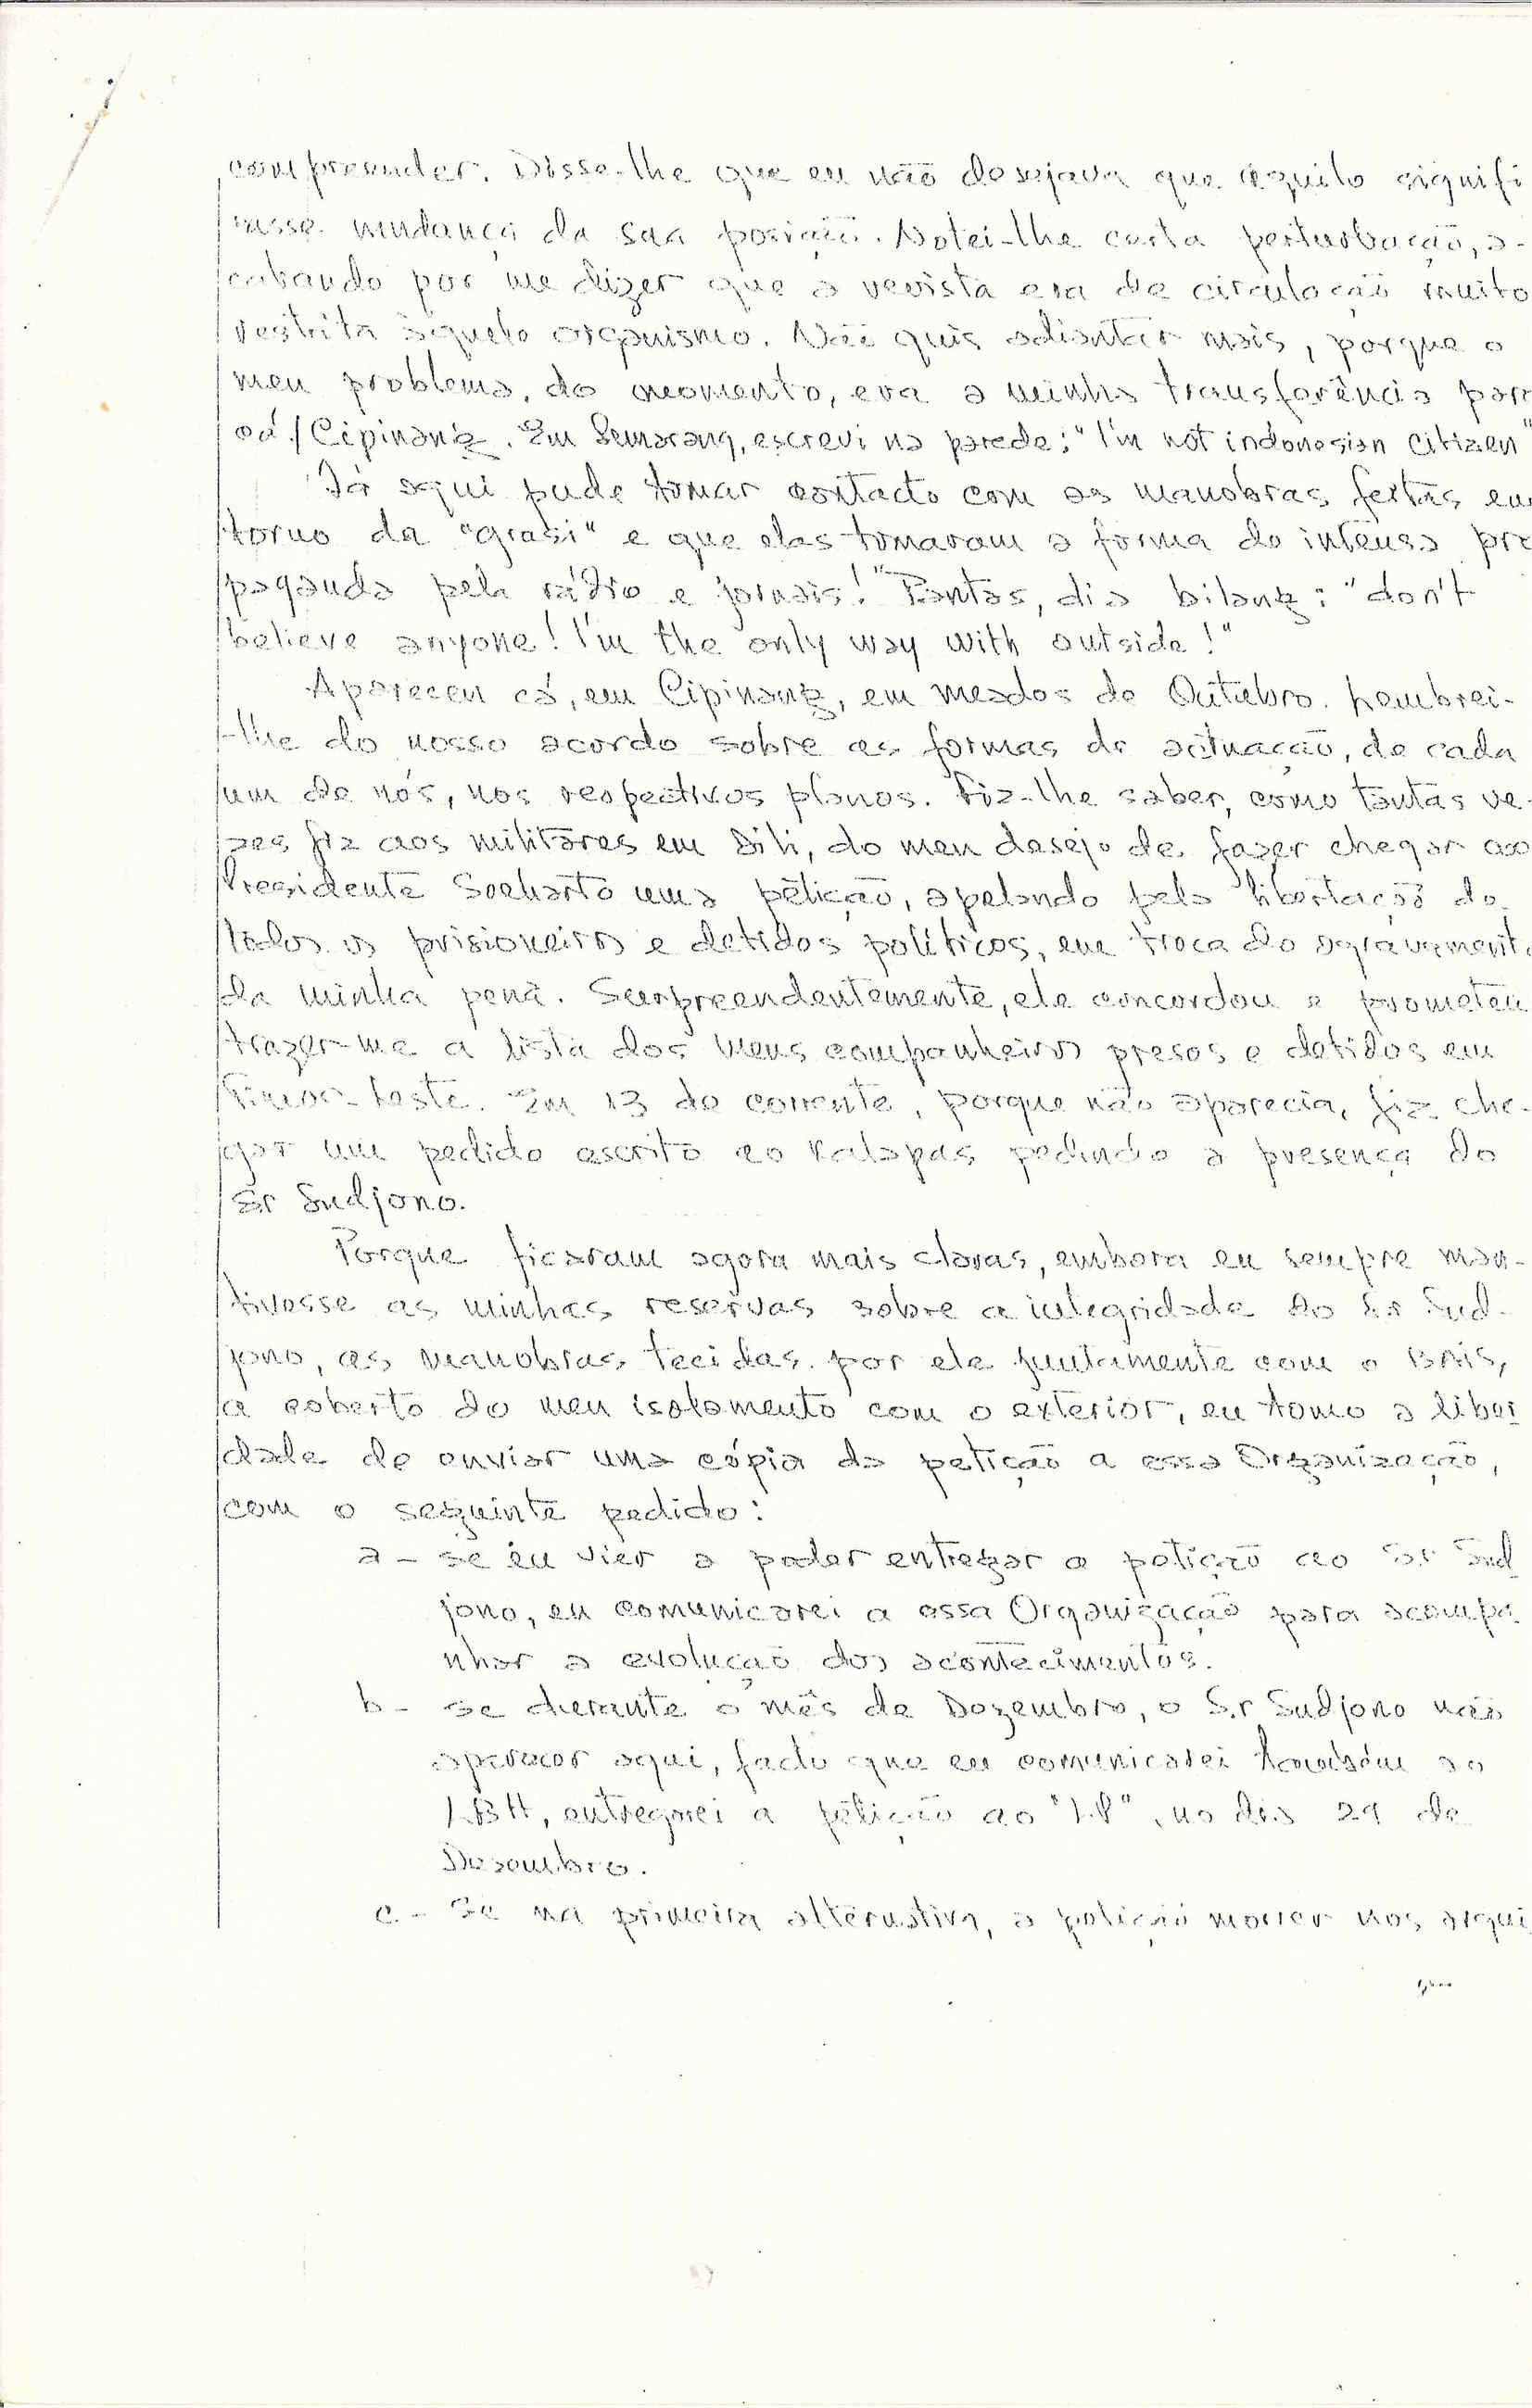 compreender. Disse-lhe que eu não desejava que aquilo signifi
casse mudança da sua posição. Notei-lhe certa perturbação, a-
cabando por me dizer que a revista era de circulação muito
restrita àquele organismo. Não quis adiantar mais, porque o
meu problema, do momento, era a minha transferência para
cá/Cipinang. Em Semarang, escrevi na parede: "I'm not indonesian citizen"
Já aqui pude tomar contacto com as manobras feitas em
torno da "grasi" e que elas tomaram a forma de intensa pro
paganda pela rádio e jornais! "Pantas, dia bilang: "don't
believe anyone! I'm the only way with outside!"
Apareceu cá, em Cipinang, em meados de Outubro. Lembrei-
-lhe do nosso acordo sobre as formas de actuação, de cada
um de nós, nos respectivos planos. Fiz-lhe saber, como tantas ve-
zes fiz aos militares em Dili, do meu desejo de fazer chegar ao
Presidente Soeharto uma petição, apelando pela libertação de
todos os prisioneiros e detidos políticos, em troca do agravamento
da minha pena. Surpreendentemente, ele concordou e prometeu
trazer-me a lista dos meus companheiros presos e detidos em
Timor-Leste. Em 13 do corrente, porque não aparecia, fiz che-
gar um pedido escrito ao Kalapas pedindo a presença do
Sr Sudjono.
Porque ficaram agora mais claras, embora eu sempre man-
tivesse as minhas reservas sobre a integridade do Sr Sud-
jono, as manobras tecidas por ele juntamente com o BAIS,
a coberto do meu isolamento com o exterior, eu tomo a liber
dade de enviar uma cópia da petição a essa Organização,
com o seguinte pedido:
a - se eu vier a poder entregar a petição ao Sr Sud
jono, eu comunicarei a essa Organização para acompa
nhar a evolução dos acontecimentos.
b - se durante o mês de Dezembro, o Sr Sudjono não
aparecer aqui, facto que eu comunicarei também ao
LBH, entregarei a petição ao "LP", no dia 29 de
Dezembro.
c - Se na primeira alternativa, a petição morrer nos arqui